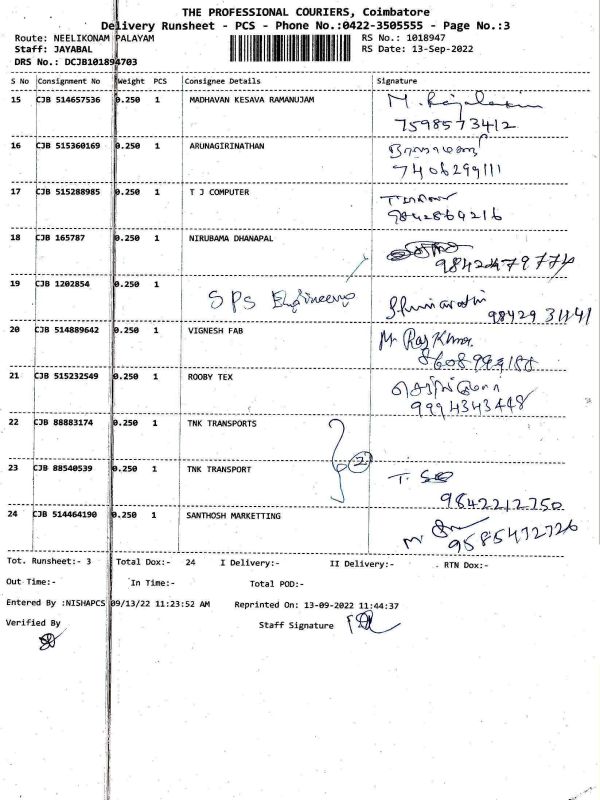 THE PROFESSIONAL COURIERS, Coimbatore
Delivery Runsheet - PCS - Phone No.:0422-3505555 - Page No.:3
Route: NEELIKONAM PALAYAM RS No.: 1018947
Staff: JAYABAL RS Date: 13-Sep-2022
DRS No.: DCJB101894703
S No Consignment No Weight PCS Consignee Details Signature
15 CJB 514657536 0.250 1 MADHAVAN KESAVA RAMANUJAM M.
7598573412
16 CJB 515360169 0.250 1 ARUNAGIRINATHAN
7406299111
17 CJB 515288985 0.250 1 T J COMPUTER
9842864216
18 CJB 165787 0.250 1 NIRUBAMA DHANAPAL
19 CJB 1202854 0.250 1
SPS Engineering
98429 31141
20 CJB 514889642 0.250 1 VIGNESH FAB Mr Raj Kumar
21 CJB 515232549 0.250 1 ROOBY TEX
9994343448
22 CJB 88883174 0.250 1 TNK TRANSPORTS
2
23 CJB 88540539 0.250 1 TNK TRANSPORT T.
9842212750
24 CJB 514464190 0.250 1 SANTHOSH MARKETTING
9585472726
Tot. Runsheet:- 3 Total Dox:- 24 I Delivery:- II Delivery:- RTN Dox:-
Out Time:- In Time:- Total POD:-
Entered By :NISHAPCS 09/13/22 11:23:52 AM Reprinted On: 13-09-2022 11:44:37
Verified By Staff Signature